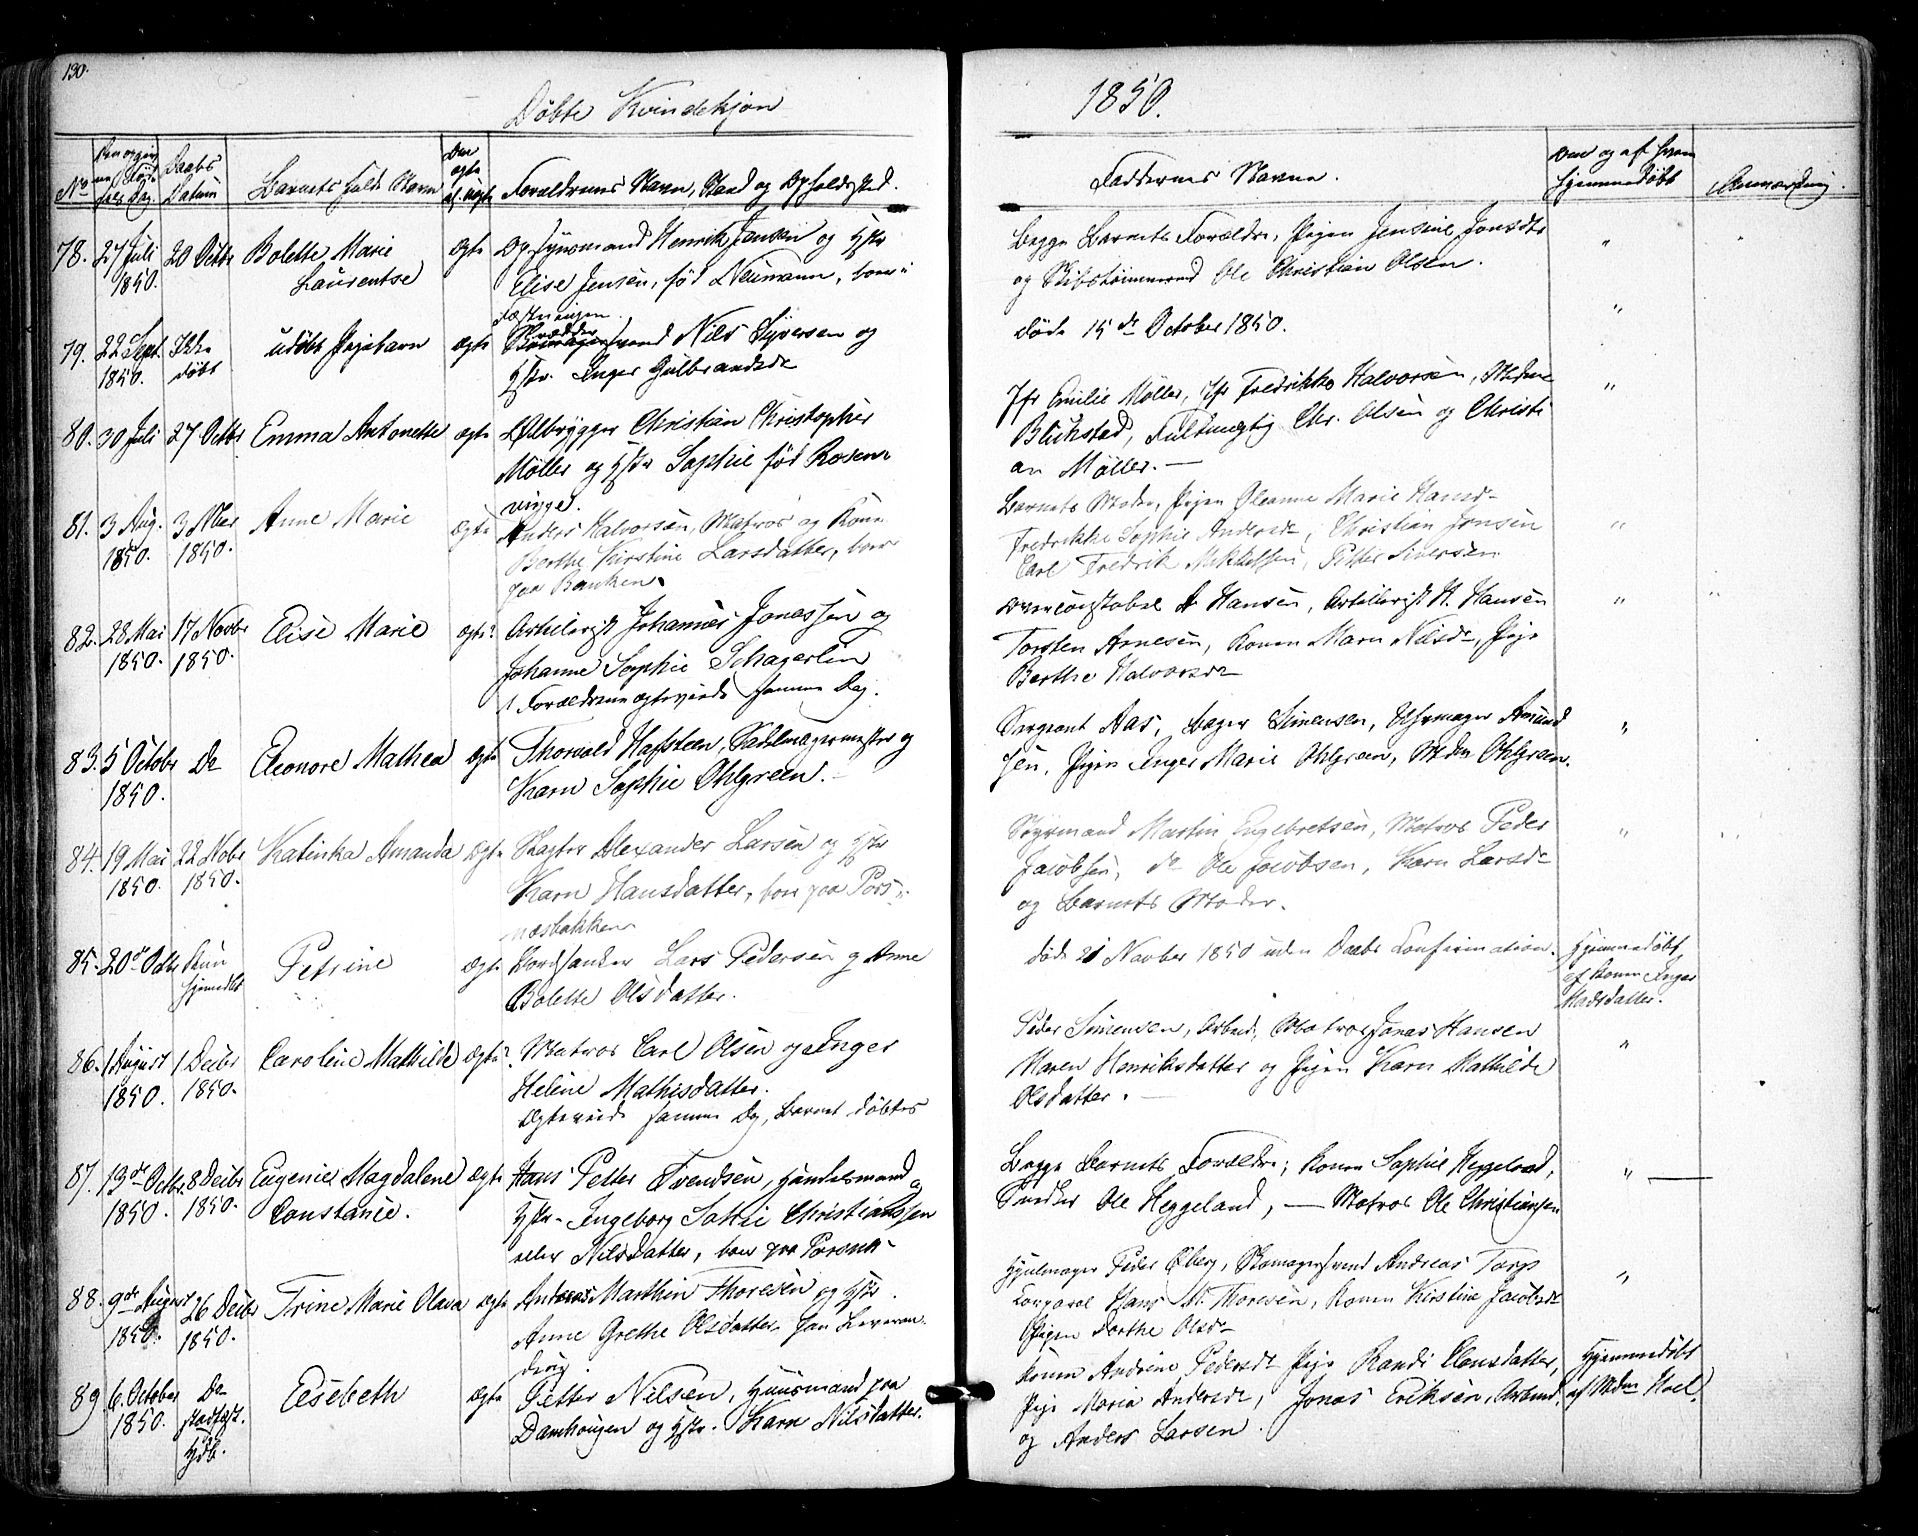 130.
Døbte Kvindekjøn
1850.
No
Daabs Datum
Barnets fulde Navn
Om ægte el. uægte
Forældrenes Navn, Stand og Opholdssted.
Faddernes Navne.
Om og af hvem hjemmedøbt
Anmærkning.
78. 27 Juli 1850. 20 Octbr Bolette Marie Laurentse ægte Opsynsmand Henrik Jensen og Hstr
Elise Jensen, fød Neumann, boer i
Fæstningen.
begge Barnets Forældre, Pigen Jensine Jonsdtr
og Skibstømmermd Ole Christian Olsen.
79. 22 Sept. 1850. Ikke døbt udøbt Pigebarn ægte Skræddersvend Nils Syversen og
Hstr. Inger Gulbrandsdr
døde 15de October 1850.
80. 30 Juli 27 Octbr Emma Antonette ægte Ølbrygger Christian Christopher
Møller og Hstr Sophie fød Rosen-
vigge.
Jfr Emilie Møller, Jfr Fredrikke Halvorsen, Mdme
Blikstad, Fuldmægtig Chr. Olsen og Christi
an Møller. —
81. 3 Aug. 1850. 3 Nbr 1850. Anne Marie ægte Anders Halvorsen, Matros og Kone
Berthe Kirstine Larsdatter, boer
paa Banken.
Barnets Moder, Pigen Oleanne Marie Hansd-
Fredrikke Sophie Andersdr, Christian Jensen
Carl Fredrik Mikkelsen, Petter Siversen
82. 28 Mai 1850. 17 Novbr 1850. Elise Marie ægte Artillerist Johannes Jonassen og
Johanne Sophie Schagerlin
Forældrene ægteviede samme Dag.
Overconstabel A Hansen, Artillerist H. Hansen
Torsten Arnesen, Konen Maren Nilsdr, Pige
Berthe Halvorsdr
83. 5 Octobr 1850. Do Eleonore Mathea ægte Thorvald Hafsteen, Sadelmagermester og
Karn Sophie Ohlgreen.
Sergeant Aas, Bager Simensen, Uhrmager Amund
sen, Pigen Inger Marie Ohlgreen, Mdm Ohlgreen.
84. 19 Mai 1850. 22 Nobr 1850. Katinka Amanda ægte Slagter Alexander Larsen og Hstr
Karn Hansdatter, boer paa Pors-
næsbakken
Styrmand Martin Engebretsen, Matros Peder
Jacobsen, do Ole Jacobsen, Karn Larsdr
og Barnets Moder.
85. 20de Octbr Kun hjemdbt Petrine ægte Lars Pedersen og Anne
Bolette Olsdatter.
døde 21 Novber 1850 uden Daabs Confirmation.
Hjemmedøbt af Konen Inger Madsdatter.
86. 1 August 1850. 1 Decbr 1850. Caroline Mathilde ægte Matros Carl Olsen og Inger
Helene Mathisdatter.
Ægteviede samme Dg, Barnet døbtes
Peder Simensen, Arbeid, Matros Jonas Hansen
Maren Henriksdatter og Pigen Karn Mathilde
Olsdatter.
87. 13de Octbr. 1850. 8 Decbr 1850. Eugenie Magdalene Constance. ægte Hans Petter Svendsen, Handelsmand og
Hstr. Ingeborg Sofie Christiansen
eller Nilsdatter, boer paa Porsnæs
Begge Barnets Forældre, Konen Sophie Heggeland,
Snedker Ole Heggeland, — Matros Ole Christiansen
88. 9de August 1850. 26 Decbr 1850. Trine Marie Olava ægte Andreas Marthin Thoresen og Hstr.
Anne Grethe Olsdatter,
Hjulmager Peder Øberg, Skomagersvend Andreas Torp
Corporal Hans M. Thoresen, Konen Kirstine Jacobsdr
Pigen Dorthe Olsdr
89 6. October 1850. Do stadfæst. Hdb. Elisebeth ægte Petter Nilsen, Huusmand paa
Damhougen og Hstr. Karn Nilsdatter.
Konen Andrine Pedersdr Pige Randi Clausdatter,
Pige Maria Andersdr, Jonas Eriksen, Arbmd.
og Anders Larsen.
Hjemmedøbt af Mdm Hoel.